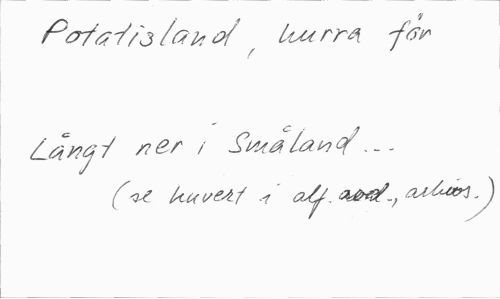 Potatisland, hurra för
Långt ner i Småland...
(se kuvert i alf. ord., arkiv.)